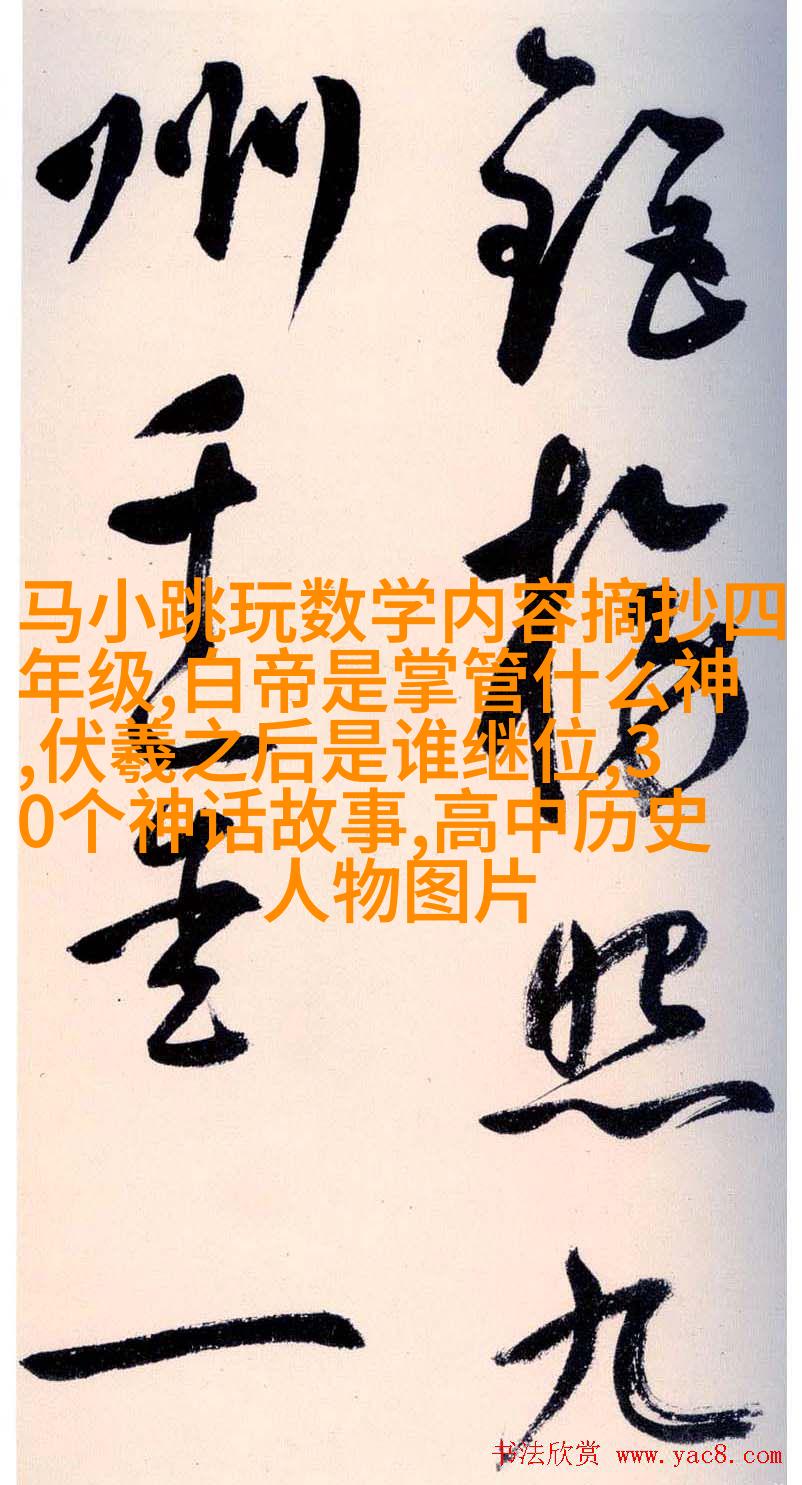 马小跳玩数学内容摘抄四
年级,白帝是掌管什么神
,伏羲之后是谁继位,3
0个神话故事,高中历史
人物图片
照九
州千里一
书法欣赏 www.yac8.com